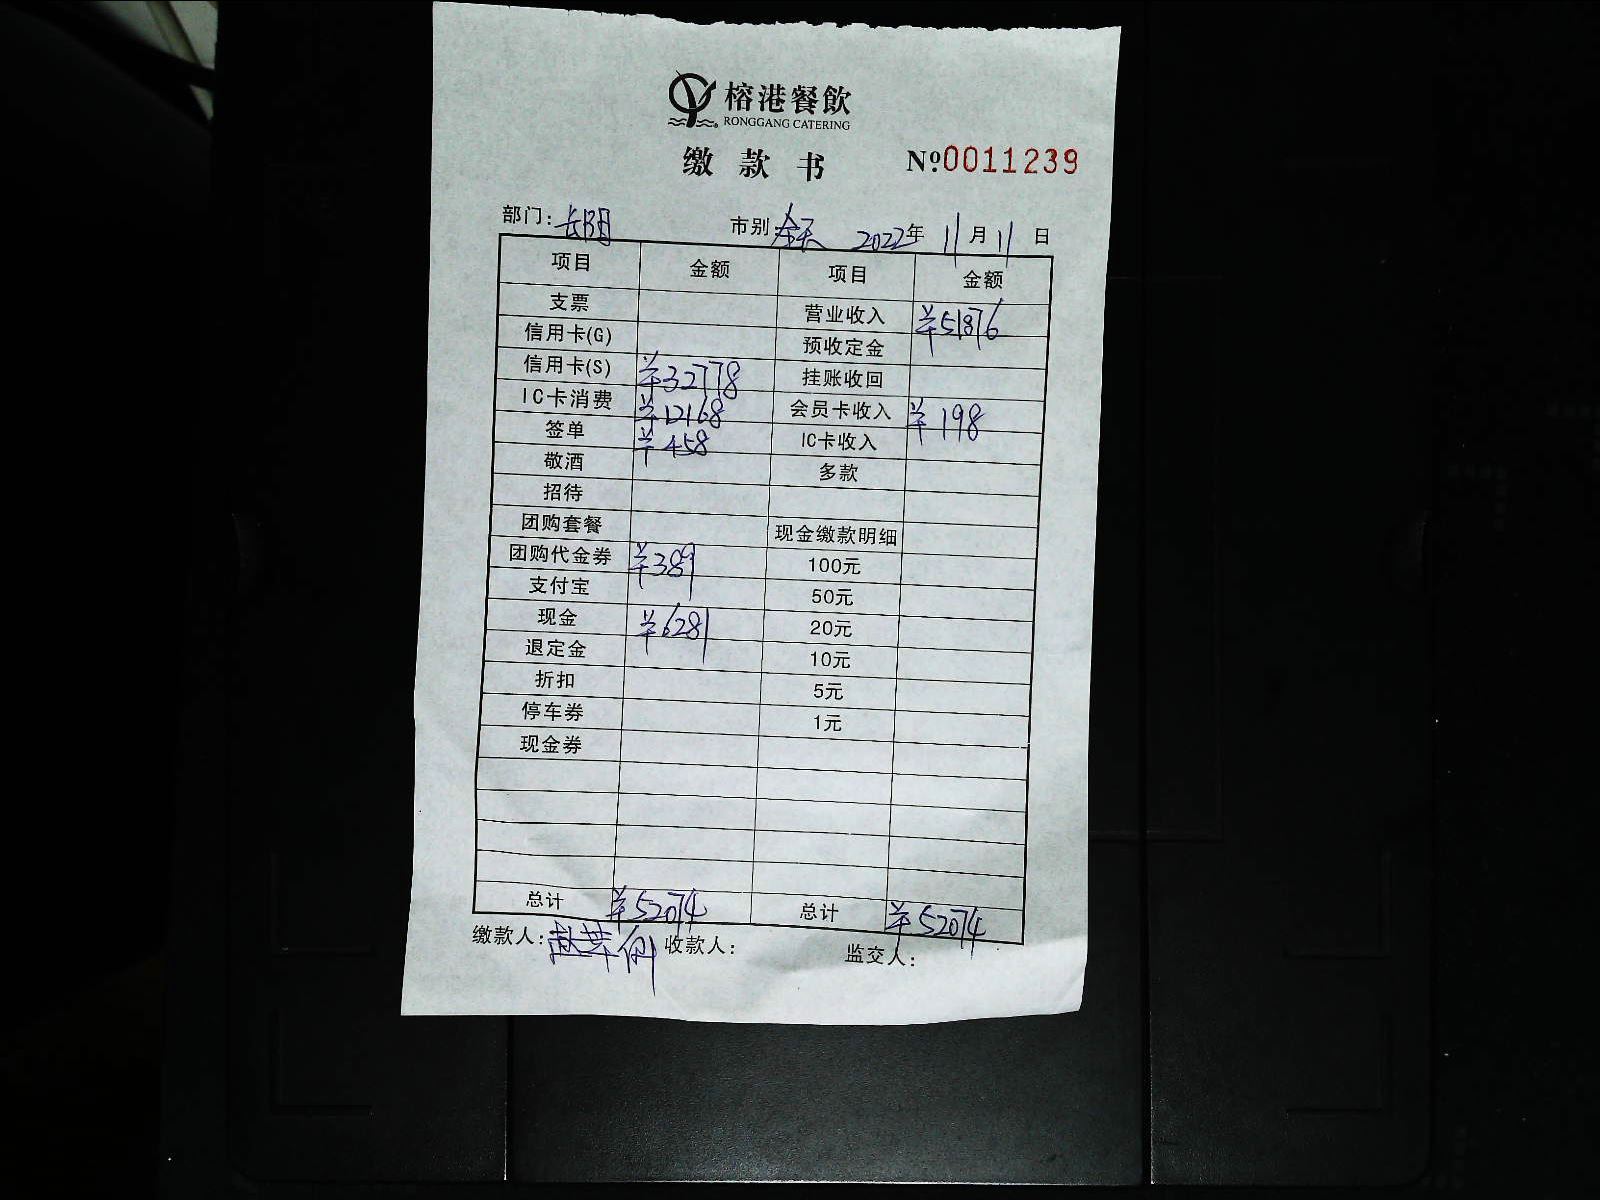 榕港餐飲
RONGGANG CATERING
缴款书 Nº0011239
部门：长阳 市别：全天 2022年 11月 11日
项目 金额 项目 金额
支票 营业收入 ¥51876
信用卡(G) 预收定金
信用卡(S) ¥32778 挂账收回
IC卡消费 ¥12168 会员卡收入 ¥198
签单 ¥458 IC卡收入
敬酒 多款
招待
团购套餐 现金缴款明细
团购代金券 ¥389 100元
支付宝 50元
现金 ¥6281 20元
退定金 10元
折扣 5元
停车券 1元
现金券
总计 ¥52074 总计 ¥52074
缴款人： 收款人： 监交人：